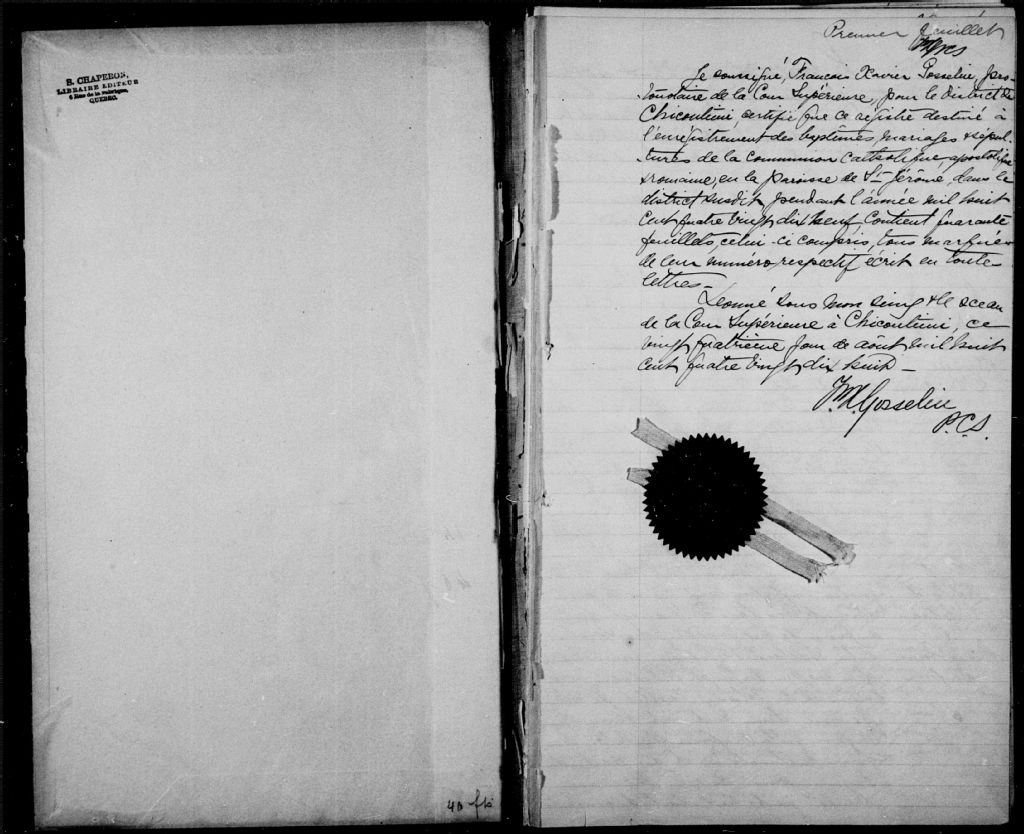 S. CHAPERON,
LIBRAIRE EDITEUR
6 Rue de la Fabrique,
QUEBEC.
40 fts
Premier feuillet
Je soussigné, François Xavier Gosselin, pro-
-tonotaire de la Cour Supérieure, pour le district de
Chicoutimi, certifie que ce régistre destiné à
l'enregistrement des baptêmes, mariages & sépul-
-tures de la communion catholique, apostolique
& romaine, en la paroisse de St Jérôme, dans le
district susdit, pendant l'année mil huit
cent quatre vingt dix neuf contient quarante
feuillets celui-ci compris, tous marqués
de leur numéro respectif écrit en toutes
lettres.—
Donné sous mon seing & le sceau
de la Cour Supérieure à Chicoutimi, ce
vingt quatrième jour de août mil huit
cent quatre vingt dix huit —
F. X. Gosselin
P.C.S.